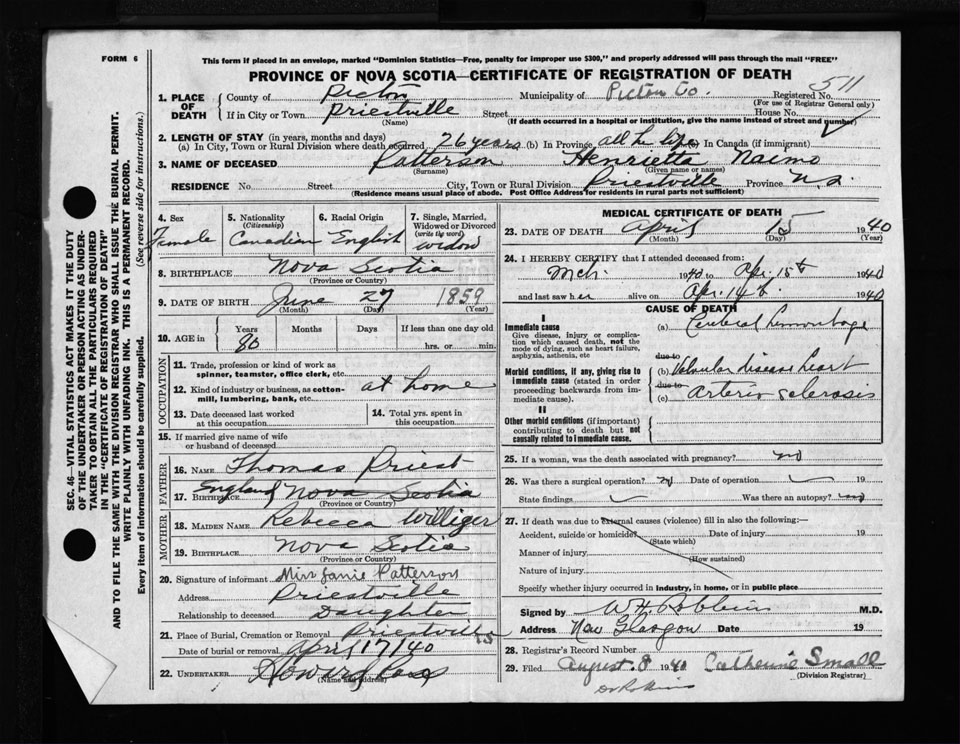 FORM 6
This form if placed in an envelope, marked "Dominion Statistics—Free, penalty for improper use $300," and properly addressed will pass through the mail "FREE"
PROVINCE OF NOVA SCOTIA—CERTIFICATE OF REGISTRATION OF DEATH
511
1. PLACE OF DEATH
County of Pictou Municipality of Pictou Co. Registered No.
(For use of Registrar General only)
If in City or Town Priestville Street House No.
(Name) (If death occurred in a hospital or institution, give the name instead of street and number)
2. LENGTH OF STAY (in years, months and days)
(a) In City, Town or Rural Division where death occurred 26 years (b) In Province all her life (c) In Canada (if immigrant)
3. NAME OF DECEASED Patterson Henrietta Naimo
(Surname) (Given name or names)
RESIDENCE No. Street City, Town or Rural Division Priestville Province N.S.
(Residence means usual place of abode. Post Office Address for residents in rural parts not sufficient)
4. Sex Female
5. Nationality (Citizenship) Canadian
6. Racial Origin English
7. Single, Married, Widowed or Divorced (write the word) widow
8. BIRTHPLACE Nova Scotia
(Province or Country)
9. DATE OF BIRTH June 27 1859
(Month) (Day) (Year)
10. AGE in Years Months Days If less than one day old
80 hrs. or min.
OCCUPATION
11. Trade, profession or kind of work as spinner, teamster, office clerk, etc.
12. Kind of industry or business, as cotton-mill, lumbering, bank, etc. at home
13. Date deceased last worked at this occupation
14. Total yrs. spent in this occupation
15. If married give name of wife or husband of deceased
FATHER
16. NAME Thomas Priest
17. BIRTHPLACE England Nova Scotia
(Province or Country)
MOTHER
18. MAIDEN NAME Rebecca Williger
19. BIRTHPLACE Nova Scotia
(Province or Country)
20. Signature of informant Miss Janie Patterson
Address Priestville
Relationship to deceased Daughter
21. Place of Burial, Cremation or Removal Priestville
Date of burial or removal April 17/40
22. UNDERTAKER
(Name and address)
MEDICAL CERTIFICATE OF DEATH
23. DATE OF DEATH April 15 1940
(Month) (Day) (Year)
24. I HEREBY CERTIFY that I attended deceased from:
Mch. 1940 to Apr. 15th 1940
and last saw her alive on Apr. 14th 1940
CAUSE OF DEATH
I
Immediate cause
Give disease, injury or complication which caused death, not the mode of dying, such as heart failure, asphyxia, asthenia, etc
(a) Cerebral hemorrhage
due to
Morbid conditions, if any, giving rise to immediate cause (stated in order proceeding backwards from immediate cause).
(b) Valvular disease heart
due to
(c) Arterio sclerosis
II
Other morbid conditions (if important) contributing to death but not causally related to immediate cause.
25. If a woman, was the death associated with pregnancy? no
26. Was there a surgical operation? no Date of operation 19
State findings Was there an autopsy? no
27. If death was due to external causes (violence) fill in also the following:—
Accident, suicide or homicide? Date of injury 19
(State which)
Manner of injury
(How sustained)
Nature of injury
Specify whether injury occurred in industry, in home, or in public place
Signed by W H Robbins M.D.
Address New Glasgow Date 19
28. Registrar's Record Number
29. Filed August 8 1940 Catherine Small
(Division Registrar)
SEC. 46—VITAL STATISTICS ACT MAKES IT THE DUTY
OF THE UNDERTAKER OR PERSON ACTING AS UNDER-
TAKER TO OBTAIN ALL THE PARTICULARS REQUIRED
IN THE "CERTIFICATE OF REGISTRATION OF DEATH"
AND TO FILE THE SAME WITH THE DIVISION REGISTRAR WHO SHALL ISSUE THE BURIAL PERMIT.
WRITE PLAINLY WITH UNFADING INK. THIS IS A PERMANENT RECORD.
Every item of information should be carefully supplied. (See reverse side for instructions.)